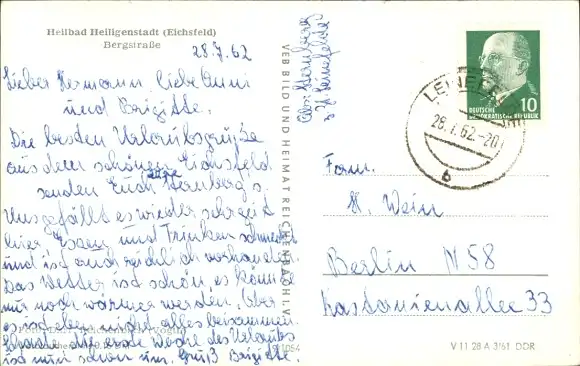 Heilbad Heiligenstadt (Eichsfeld)
Bergstraße
28.7.62
Lieber Hermann, liebe Anni
und Brigitte.
Die besten Urlaubsgrüße
aus dem schönen Eichsfeld
senden Euch eure Hernberg's.
Uns gefällt es wieder sehr gut
hier. Essen und Trinken schmeckt
und ist auch reichlich vorhanden.
Das Wetter ist schön, es könnte
nur noch wärmer werden. Aber
es ist eben nicht alles beisammen.
Schade, die erste Woche des Urlaubs
ist nun schon um. Gruß Brigitte.
VEB BILD UND HEIMAT REICHENBACH I. V.
Abs. Hernberg
DEUTSCHE
DEMOKRATISCHE REPUBLIK
10
28.7.62.-20
b
Fam.
H. Wein
Berlin N 58
Kastanienallee 33
V 11 28 A 3/61 DDR